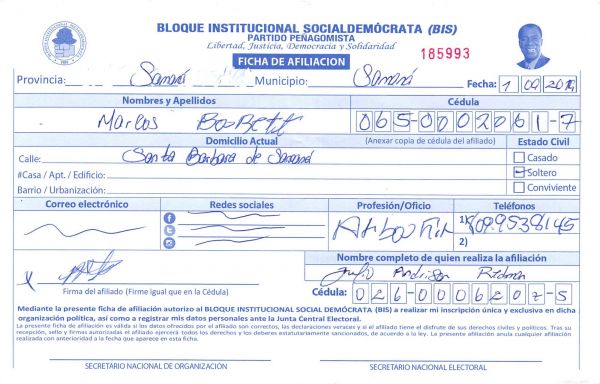 BLOQUE INSTITUCIONAL SOCIALDEMÓCRATA (BIS)
PARTIDO PEÑAGOMISTA
Libertad, Justicia, Democracia y Solidaridad
FICHA DE AFILIACION
185993
Provincia: Samaná Municipio: Samaná Fecha: 1 09 2019
Nombres y Apellidos Cédula
Marcos 065-0002061-7
Domicilio Actual (Anexar copia de cédula del afiliado) Estado Civil
Calle: Santa Barbara de Samaná Casado
#Casa / Apt. / Edificio: Soltero
Barrio / Urbanización: Conviviente
Correo electrónico Redes sociales Profesión/Oficio Teléfonos
1) 8099538145
2)
Nombre completo de quien realiza la afiliación
Firma del afiliado (Firme igual que en la Cédula) Cédula: 026-0006207-5
Mediante la presente ficha de afiliación autorizo al BLOQUE INSTITUCIONAL SOCIAL DEMÓCRATA (BIS) a realizar mi inscripción única y exclusiva en dicha
organización política, así como a registrar mis datos personales ante la Junta Central Electoral.
La presente ficha de afiliación es válida si los datos ofrecidos por el afiliado son correctos, las declaraciones veraces y si el afiliado tiene el disfrute de sus derechos civiles y políticos. Tras su
recepción, sello y firmas autorizadas el afiliado ejercerá todos los derechos y los deberes estatutariamente sancionados, de acuerdo a la ley. La presente afiliación anula cualquier afiliación
realizada con anterioridad a la fecha que aparece en esta ficha.
SECRETARIO NACIONAL DE ORGANIZACIÓN SECRETARIO NACIONAL ELECTORAL